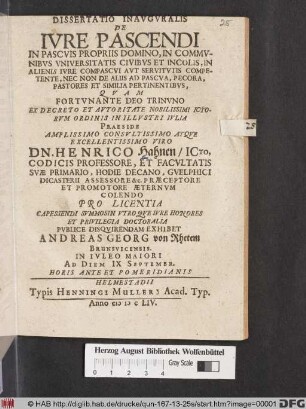 DISSERTATIO INAVGVRALIS
DE
IVRE PASCENDI
IN PASCVIS PROPRIIS DOMINO, IN COMMV-
NIBVS VNIVERSITATIS CIVIBVS ET INCOLIS, IN
ALIENIS IVRE COMPASCVI AVT SERVITVTIS COMPE-
TENTE, NEC NON DE ALIIS AD PASCVA, PECORA,
PASTORES ET SIMILIA PERTINENTIBVS,
QVAM
FORTVNANTE DEO TRINVNO
EX DECRETO ET AVTORITATE NOBILISSIMI ICTO-
RVM ORDINIS IN ILLVSTRI IVLIA
PRAESIDE
AMPLISSIMO CONSVLTISSIMO ATQVE
EXCELLENTISSIMO VIRO
DN. HENRICO Hahnen / ICTO,
CODICIS PROFESSORE, ET FACVLTATIS
SVÆ PRIMARIO, HODIE DECANO, GVELPHICI
DICASTERII ASSESSORE &c. PRÆCEPTORE
ET PROMOTORE ÆTERNVM
COLENDO
PRO LICENTIA
CAPESSENDI SVMMOS IN VTROQVE IVRE HONORES
ET PRIVILEGIA DOCTORALIA
PVBLICE DISQVIRENDAM EXHIBET
ANDREAS GEORG von Rhetem
BRVNSVICENSIS.
IN IVLEO MAIORI
AD DIEM IX SEPTEMBR.
HORIS ANTE ET POMERIDIANIS
HELMESTADII
Typis HENNINGI MULLERI Acad. Typ.
Anno cıɔ ıɔ c LIV.
Herzog August Bibliothek Wolfenbüttel
Gray Scale
© HAB http://diglib.hab.de/drucke/qun-167-13-25s/start.htm?image=00001
DFG